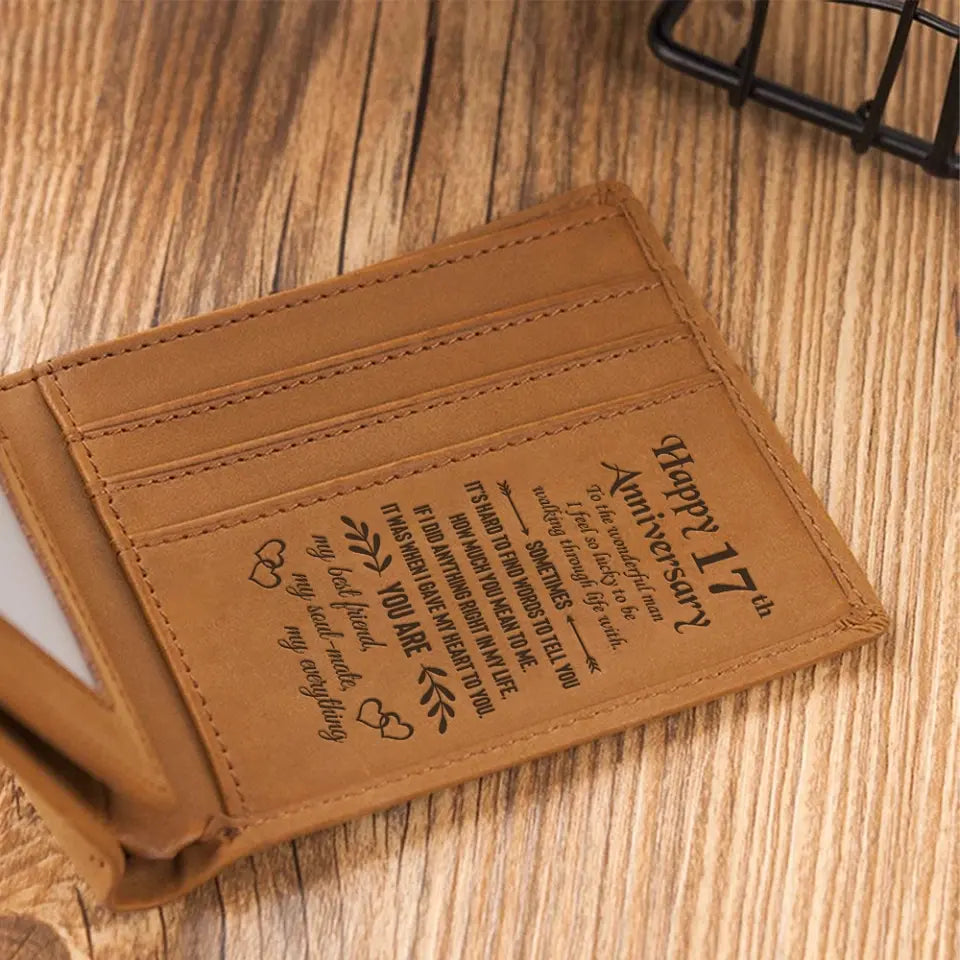 Happy 17th
Anniversary
To the wonderful man
I feel so lucky to be
walking through life with.
SOMETIMES
IT'S HARD TO FIND WORDS TO TELL YOU
HOW MUCH YOU MEAN TO ME.
IF I DID ANYTHING RIGHT IN MY LIFE.
IT WAS WHEN I GAVE MY HEART TO YOU.
YOU ARE
my best friend,
my soul-mate,
my everything